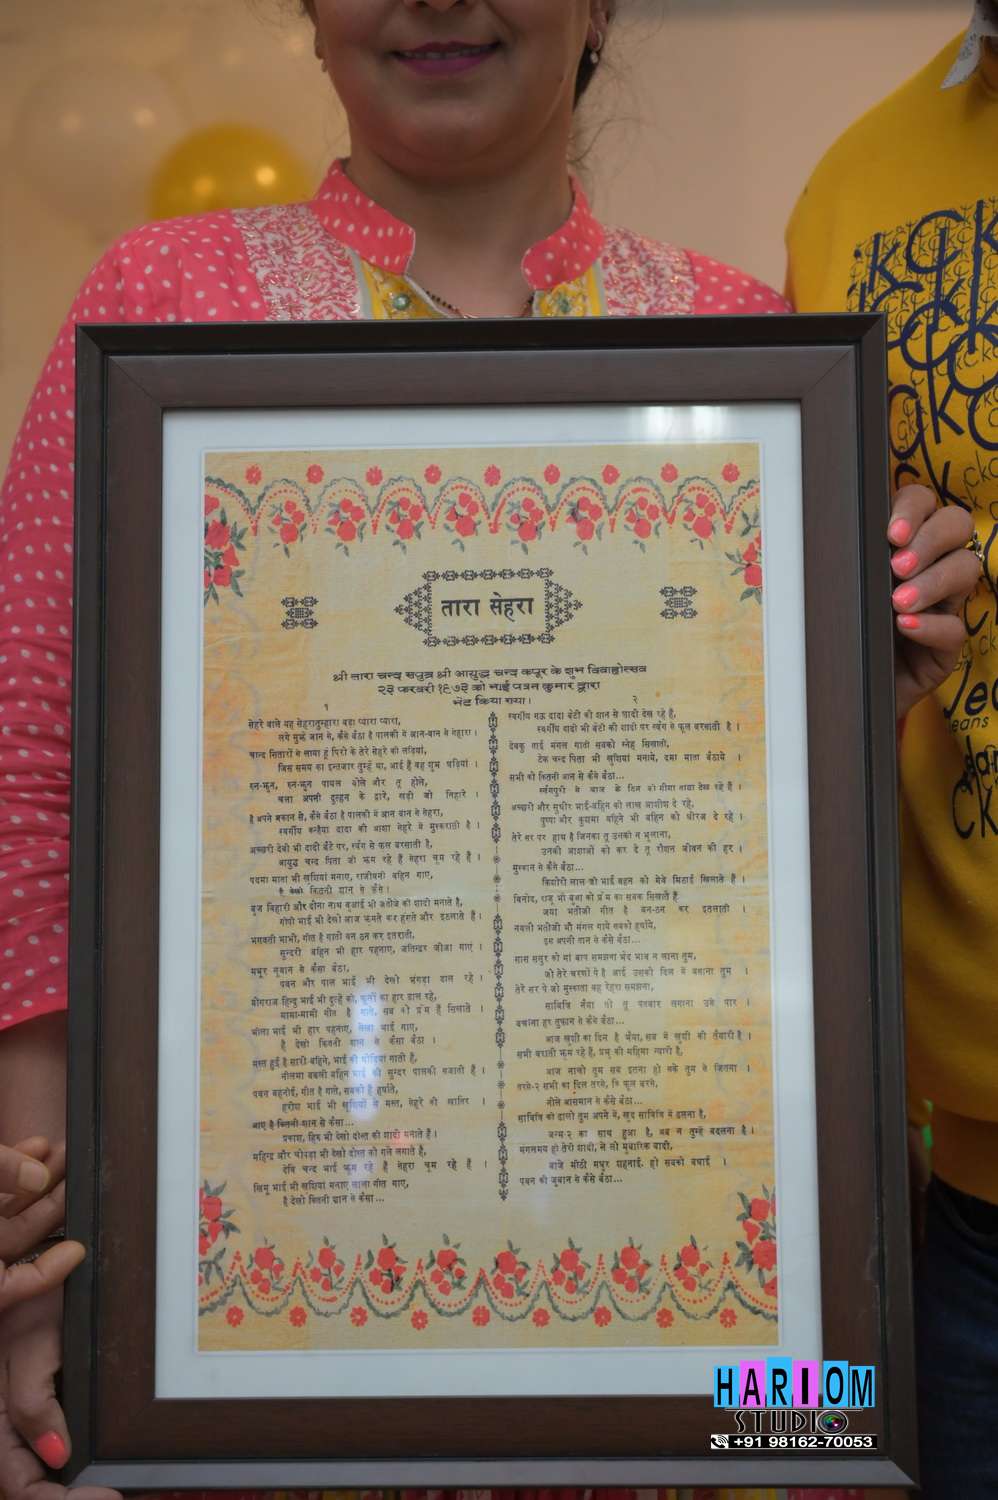 तारा सेहरा
श्री तारा चन्द सपुत्र श्री आयुद्ध चन्द कपूर के शुभ विवाहोत्सव
२३ फरवरी १९७३ को भाई पवन कुमार द्वारा
भेंट किया गया।
१
सेहरे वाले यह सेहरा तुम्हारा बड़ा प्यारा प्यारा,
लगे मुझे जान से, कैसे बैठा है पालकी में आन-बान से
चान्द सितारों से लाया हूं पिरो के तेरे सेहरे की लड़ियां,
जिस समय का इन्तजार तुम्हें था, आई है वह शुभ घड़ियां ।
रुन-झुन, रुन-झुन पायल बोले और तू होले,
चला अपनी दुल्हन के द्वारे, खड़ी जो निहारे ।
है अपने मकान से, कैसे बैठा है पालकी में आन बान से सेहरा,
स्वर्गीय कन्हैया दादा की आशा सेहरे में मुस्कराती है ।
अच्छरी देवी भी दादी बेटे पर, स्वर्ग से फूल बरसाती है,
आयुद्ध चन्द पिता जी झूम रहे हैं सेहरा चूम रहे हैं ।
पदमा माता भी खुशियां मनाए, राजीवनी बहिन गाए,
है देखो कितनी शान से कैसे ।
बृज बिहारी और दीना नाथ बुआई भी भतीजे की शादी मनाते है,
गोपी भाई भी देखो आज झूमते कर हंसते और इठलाते हैं ।
भगवती भाभी, गीत है गाती बन ठन कर इतराती,
सुन्दरी बहिन भी हार पहनाए, जतिन्दर जीजा गाएं ।
मधुर जुबान से कैसा बैठा,
पवन और पाल भाई भी देखो भंगड़ा डाल रहे ।
योगराज हिन्दु भाई भी दुल्हे को, फूलों का हार डाल रहे,
मामा-मामी गीत है गाते, सब को प्रेम हैं सिखाते ।
भोला भाई भी हार पहनाए, सेखा भाई गाए,
है देखो कितनी शान से कैसा बैठा ।
मस्त हुई है सारी बहिने, भाई की घोड़ियां गाती हैं,
नीलमा बबली बहिन भाई की सुन्दर पालकी सजाती हैं ।
पवन बहनोई, गीत है गाते, सबको हैं हर्षाते,
हरीश भाई भी खुशियों से मस्त, सेहरे की खातिर ।
आए है कितनी शान से कैसा...
प्रकाश, हिरु भी देखो दोस्त की शादी मनाते हैं ।
महिन्द्र और चोपड़ा भी देखो दोस्त को गले लगाते है,
देवि चन्द भाई झूम रहे हैं सेहरा चूम रहे हैं ।
खिमू भाई भी खुशियां मनाए लाला गीत गाए,
है देखो कितनी शान से कैसा...
२
स्वर्गीय गऊ दादा बेटी की शान से शादी देख रहे हैं,
स्वर्गीय दादी भी बेटी की शादी पर स्वर्ग से फूल बरसाती है ।
देवकु ताई मंगल गाती सबको स्नेह सिखाती,
टेक चन्द पिता भी खुशियां मनाये, दमा माता बैठाये ।
सभी को कितनी आन से कैसे बैठा...
स्वर्गपुरी से आज के दिन को मीरा ताया देख रहे हैं ।
अच्छरी और सुधीर भाई-बहिन को लाख आशीष दे रहे,
पुष्पा और कुष्मा बहिने भी बहिन को धीरज दे रहे ।
तेरे सर पर हाथ है जिनका तू उनको न भुलाना,
उनकी आशाओं को कर दे तू रौशन जीवन की हर ।
मुस्कान से कैसे बैठा...
किशोरी लाल जी भाई बहन को मेवे मिठाई खिलाते हैं ।
विनोद, राजू भी बुआ को प्रेम का सबक सिखाते हैं
जया भतीजी गीत है बन-ठन कर इठलाती ।
नवली भतीजी भी मंगल गाये सबको हर्षाये,
इस अपनी तान से कैसे बैठा...
सास ससुर को मां बाप समझना भेद भाव न लाना तुम,
जो तेरे चरणों पे है आई उसको दिल में बसाना तुम ।
तेरे सर पे को मुस्काता यह सेहरा समझना,
सावित्रि नैया की तू पतवार लगाना उसे पार ।
बचाना हर तुफान से कैसे बैठा...
आज खुशी का दिन है भैया, सब में खुशी की तैयारी है ।
सभी बराती झूम रहे हैं, प्रभु की महिमा न्यारी है,
आज नाचो तुम सब इतना हो सके तुम से जितना ।
तरसे-२ सभी का दिल तरसे, कि फूल बरसे,
नीले आसमान से कैसे बैठा...
सावित्रि को ढालो तुम अपने में, खुद सावित्रि में ढलना है,
जन्म-२ का साथ हुआ है, अब न तुम्हें बदलना है ।
मंगलमय हो तेरी शादी, ले लो मुबारिक बादी,
बाजे मीठी मधुर शहनाई, हो सबको बधाई ।
पवन की जुबान से कैसे बैठा...
HARIOM
STUDIO
+91 98162-70053